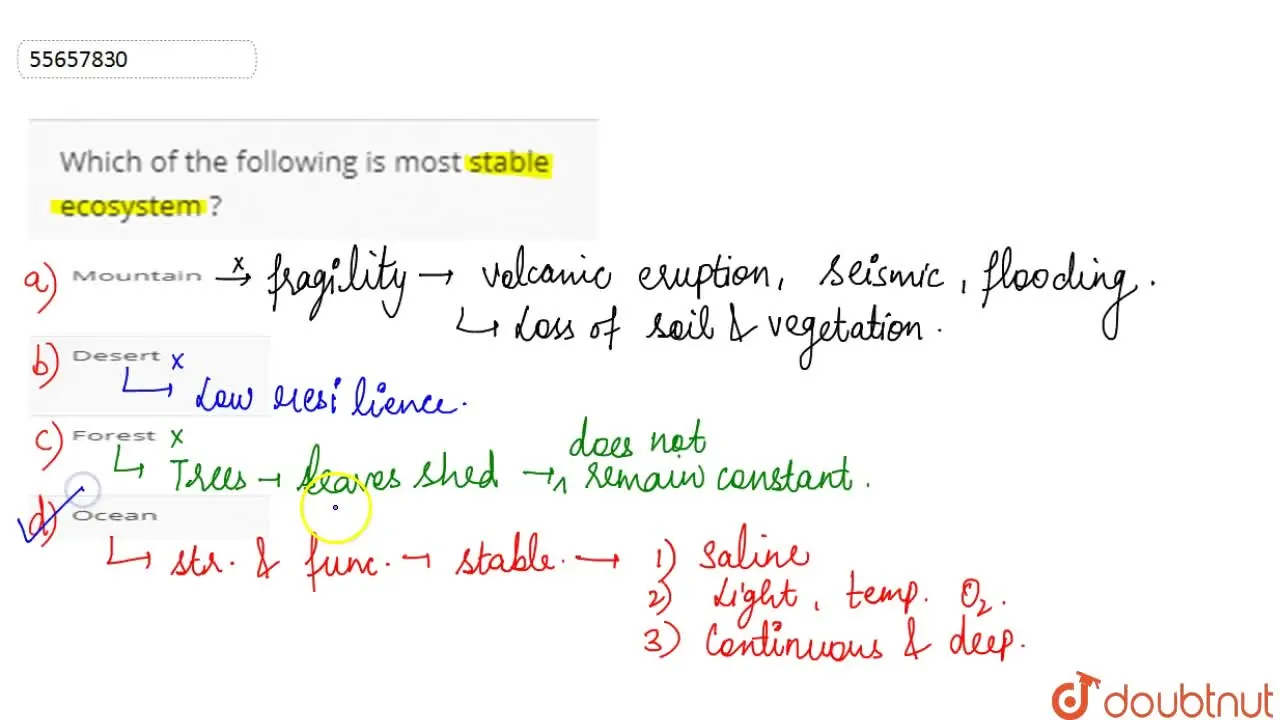 55657830
Which of the following is most stable
ecosystem ?
a) Mountain x → fragility → volcanic eruption, seismic, flooding.
↳ Loss of soil & vegetation.
b) Desert x
↳ Low resilience.
c) Forest x
↳ Trees → leaves shed → does not ^ remain constant.
d) Ocean
↳ str. & func. → stable. → 1) saline
2) Light, temp. O₂.
3) Continuous & deep.
doubtnut